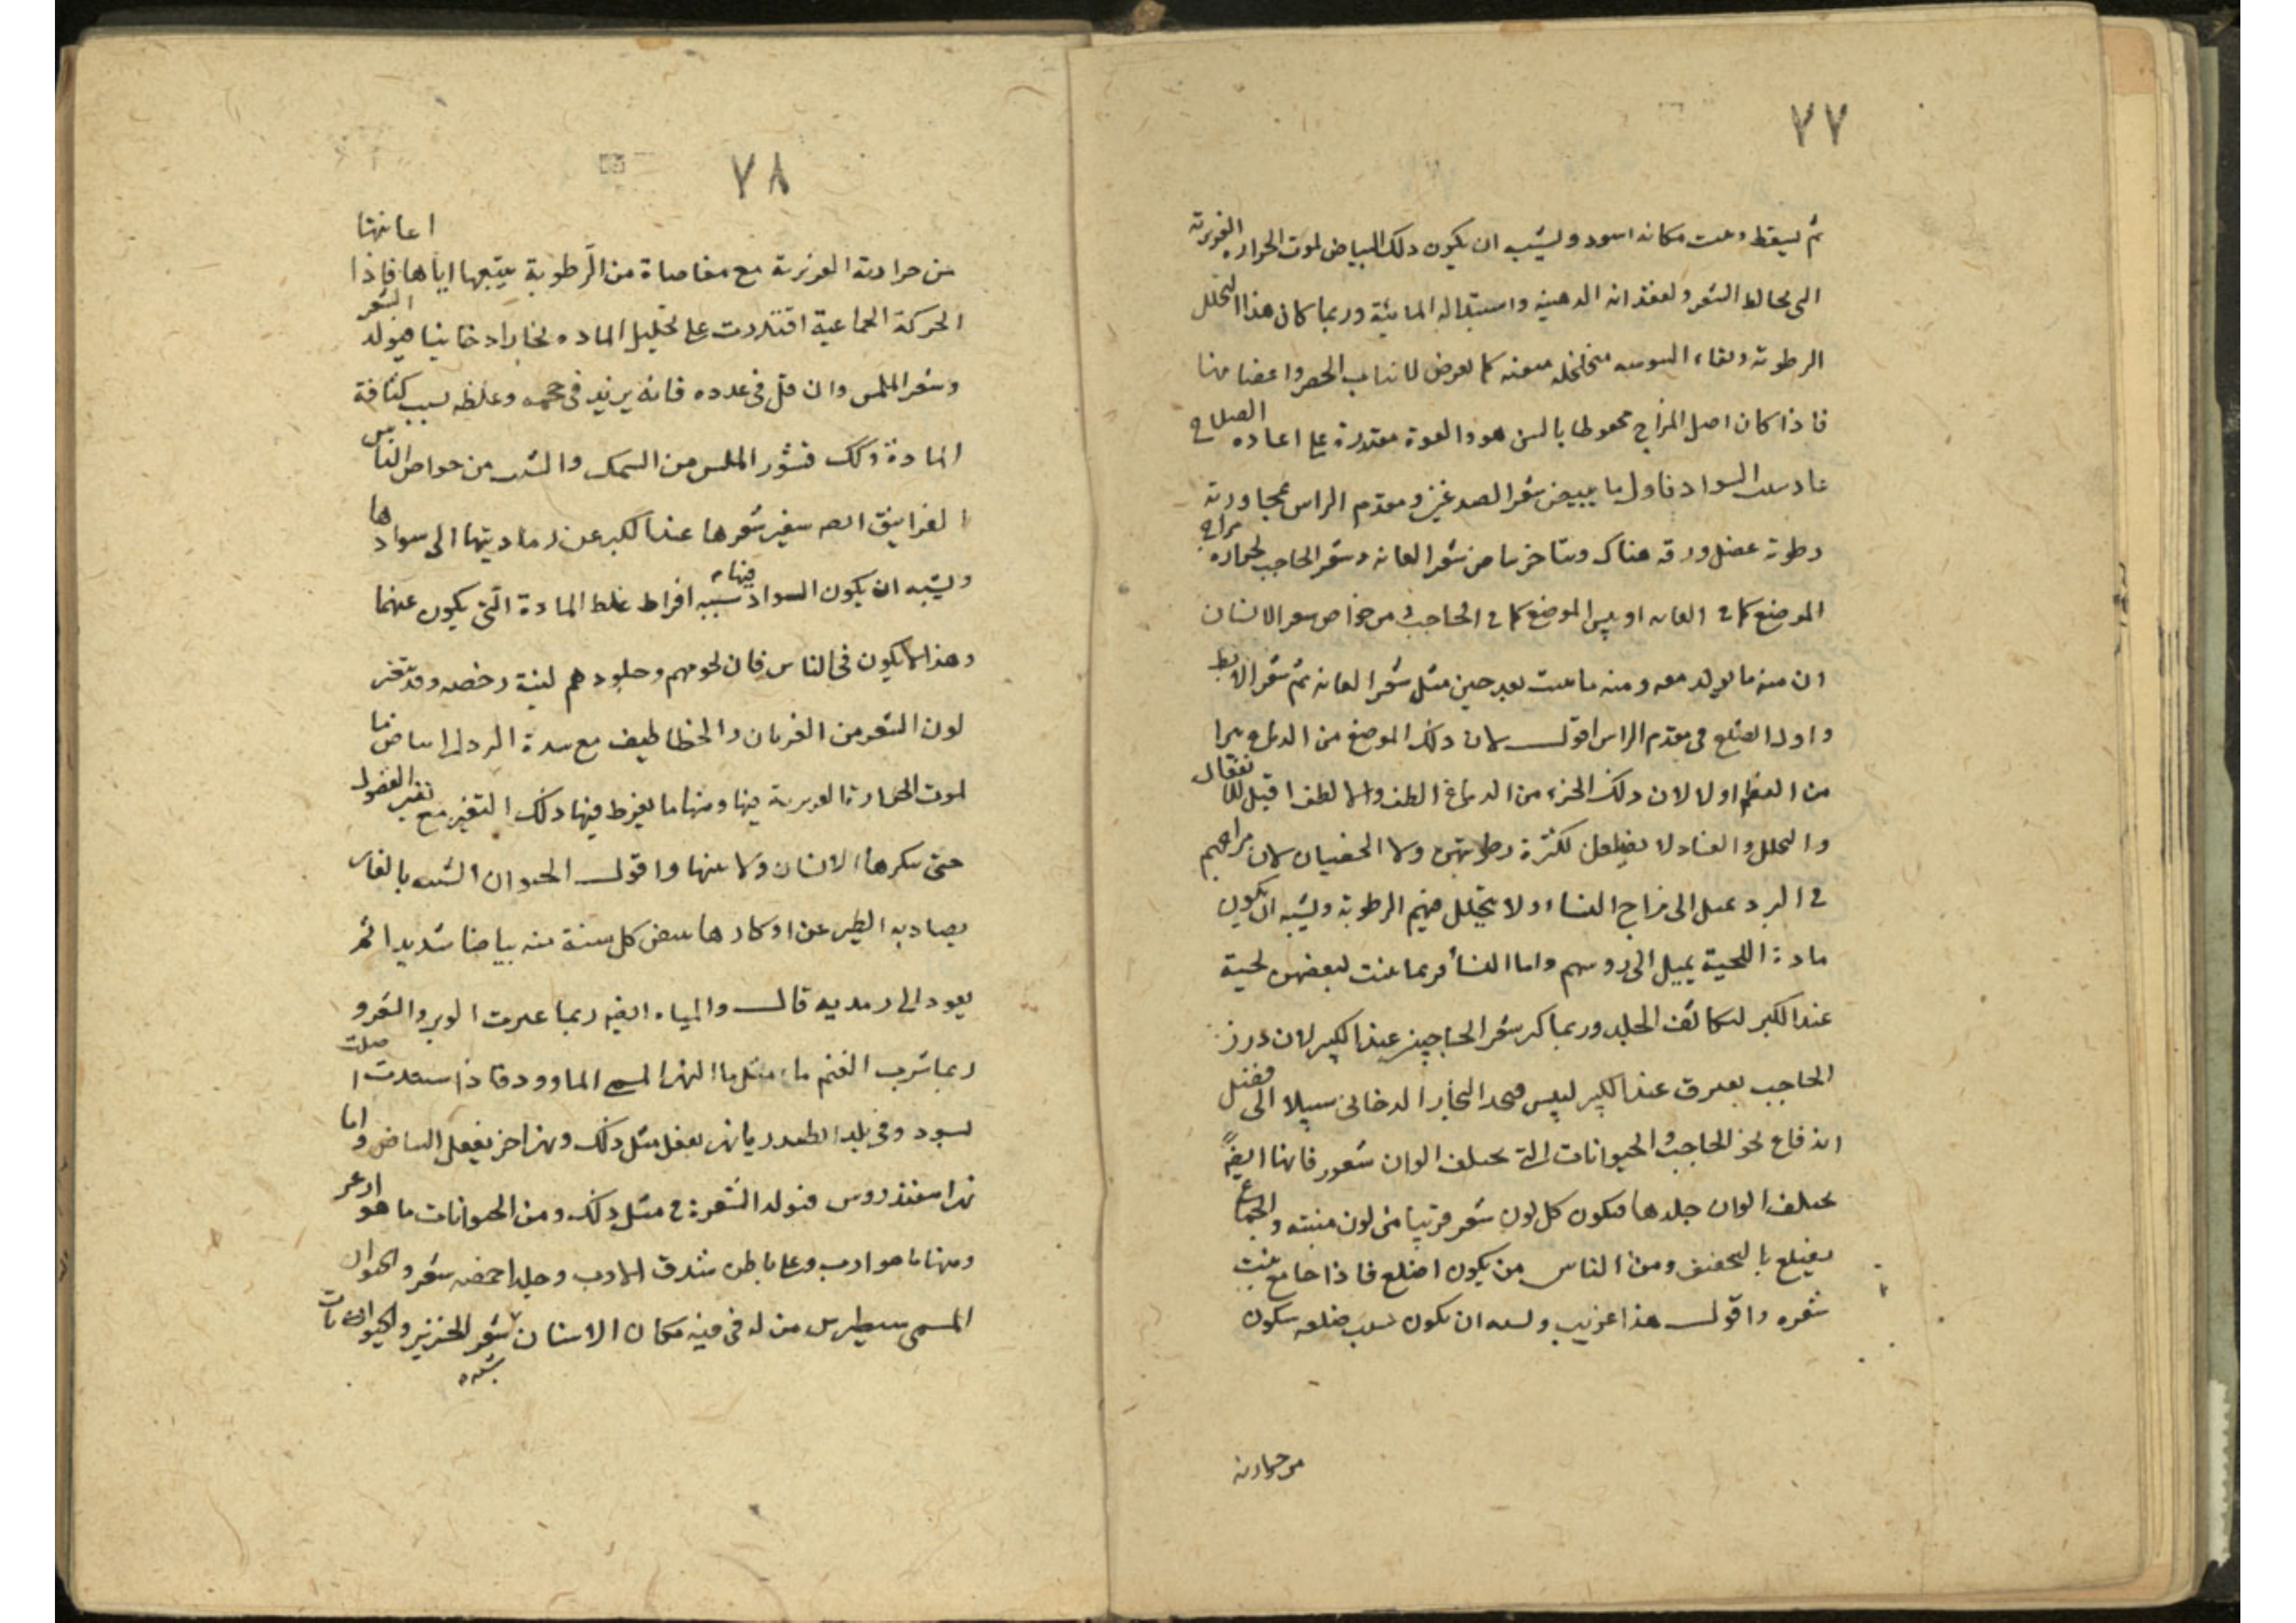 ٧٧
ثم يسقط وينبت مكانه اسود ويشبه ان يكون ذلك البياض لموت الحراره الغريزية
التي تخالط الشعر ولفقدانه الدهنية واستبداله المائية وربما كان هذا التحلل
الرطوبة وبقاء اليبوسه متخلخله كما يعرض للنبات
فاذا كان اصل المزاج محفوظا بالسن هو والقوة مقتدرة على اعاده الصلاح
عاد السواد فاول ما يبيض شعر الصدغين ومقدم الراس لمجاورته
رطوبة عضل ورقه هناك ويتاخر بياض شعر العانه وشعر الحاجب لحراره مزاج
الموضع كما في العانه او يبس الموضع كما في الحاجب من خواص شعر الانسان
ان منه ما يولد معه ومنه ما ينبت بعد حين مثل شعر العانه ثم شعر الابط
واول الصلع في مقدم الراس اقول لان ذلك الموضع من الدماغ
من العظم اولا لان ذلك الجزء من الدماغ الطف والالطف اقبل للانفعال
والتحلل والنساء لا يصلعن لكثرة رطوبتهن ولا الخصيان لان مزاجهم
في البرد يميل الى مزاج النساء ولا يتحلل منهم الرطوبة ويشبه ان يكون
مادة اللحية يميل الى روسهم واما النساء فربما نبت لبعضهن لحية
عند الكبر لتكاثف الجلد وربما كبر شعر الحاجبين عند الكبر لان درز
الحاجب يفترق عند الكبر لليبس فيجد البخار الدخاني سبيلا الى فضل
اندفاع نحو الحاجب والحيوانات التي يختلف الوان شعور فانها ايضً
يختلف الوان جلدها فيكون كل لون شعر قريبا من لون منبته والجماع
ومن الناس من يكون اصلع فاذا جامع نبت
شعره واقول هذا غريب ويشبه ان يكون سبب صلعه سكون
من حرارته
٧٨
من حرارته الغريزية مع مغاصاة من الرطوبة يتبعها اياها فاذا اعانتها
الحركة الجماعية اقتدرت على تحليل الماده بخارا دخانيا فيولد الشعر
وشعر الملس وان قل في عدده فانه يزيد في حجمه وغلظه بسبب كثافة
المادة وكذلك قشور الملس من السمك والشيب من خواص الناس
الغرانيق ايضا يتغير شعرها عند الكبر عن رماديتها الى سوادها
ويشبه ان يكون السواد فيها سببه افراط غلظ المادة التي يكون عنها
وهذا لا يكون في الناس فان لحومهم وجلودهم لينة رخصه وقد يتغير
لون الشعر من الغربان والخطاطيف مع شدة البرد الى بياض ما
لموت الحرارة الغريزية فيها ومنها ما يفرط فيها ذلك التغير مع تغير الفصول
حتى ينكرها الانسان ولا يثبتها واقول الحيوان الشبيه بالفار
يصاد به الطير عن اوكارها يبيض كل سنة منه بياضا شديدا ثم
يعود الى رمديه قال والمياه ايضا ربما غيرت الوبر والشعر و
ربما شرب الغنم ماء مثل ماء النهر المسمى الماوود فاذا سفدت
يسود وفي بلد نهر يفعل مثل ذلك ونهر اخر يفعل البياض واما
نهر اسقندروس فيولد الشقرة في مثل ذلك ومن الحيوانات ما هو ازعر
ومنها ما هو ازب وعلى باطن شدق الارنب وجلد اخمصه شعر والحيوان
المسمى سطيرس من له في فيه مكان الاسنان شعر شبيه بشعر الخنزير والحيوانات